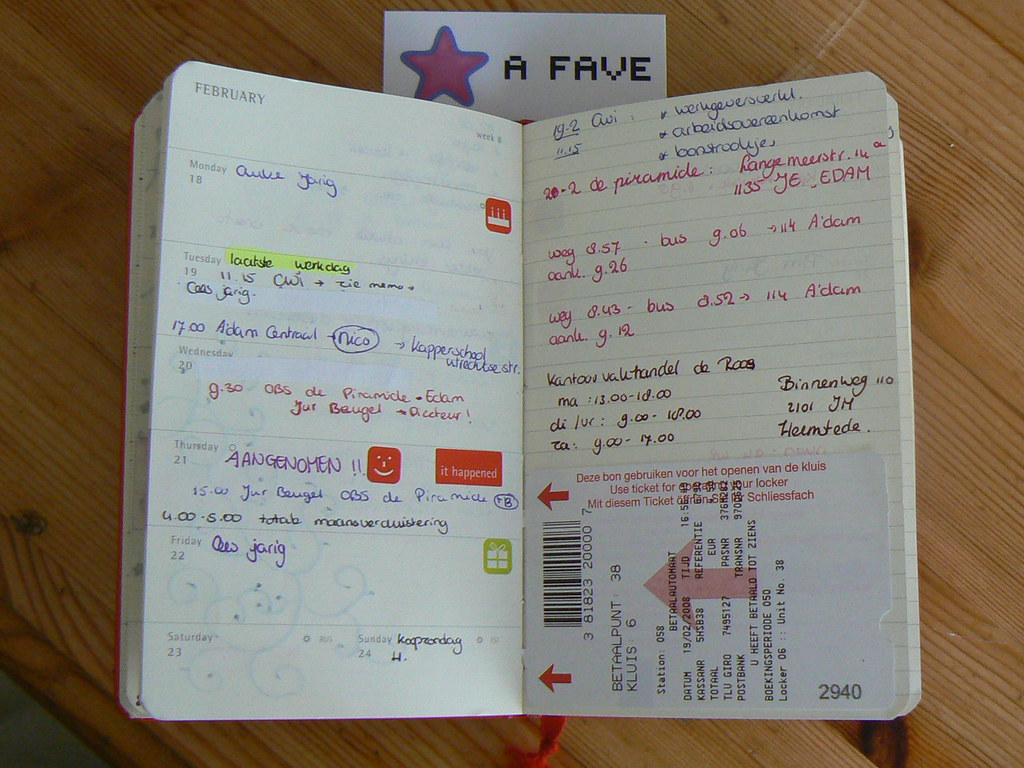 A FAVE
FEBRUARY
week 8
Monday
18
Anke jarig
Tuesday
19
laatste werkdag
11.15 CWI → zie memo →
Cees jarig.
17.00 A'dam Centraal → Nico → Kappersschool
Utrechtse str.
Wednesday
20
9.30 OBS de Piramide - Edam
Jur Beugel → Directeur!
Thursday
21
AANGENOMEN !!
it happened
15.00 Jur Beugel OBS de Piramide +B
4.00-5.00 totale maansverduistering
Friday
22
Cees jarig
Saturday
23
Sunday
24
koopzondag
H.
19-2 CWI : * werkgeversverkl.
11.15 * arbeidsovereenkomst
* loonstrookjes
20-2 de piramide: Lange meerstr. 14 a
1135 JE EDAM
weg 8.57 - bus 9.06 → 114 A'dam
aank. 9.26
weg 8.43 - bus 8.52 → 114 A'dam
aank. 9.12
Kantoorvakhandel de Roos
ma : 13.00-18.00
di/vr: 9.00-18.00
za: 9.00-17.00
Binnenweg 110
2101 JM
Heemstede.
Deze bon gebruiken voor het openen van de kluis
Use ticket for opening your locker
Mit diesem Ticket öffnen Sie Ihr Schliessfach
3 81823 20000 7
BETAALPUNT: 38
KLUIS: 6
Station: 058
BETAALAUTOMAAT
DATUM 19/02/2008 TIJD
KASSANR SHSB38 REFERENTIE
TOTAAL EUR
TLU GIRO 7495127 PASNR 376M262
POSTBANK TRANSNR
U HEEFT BETAALD TOT ZIENS
BOEKINGSPERIODE 050
Locker 06 :: Unit No. 38
2940